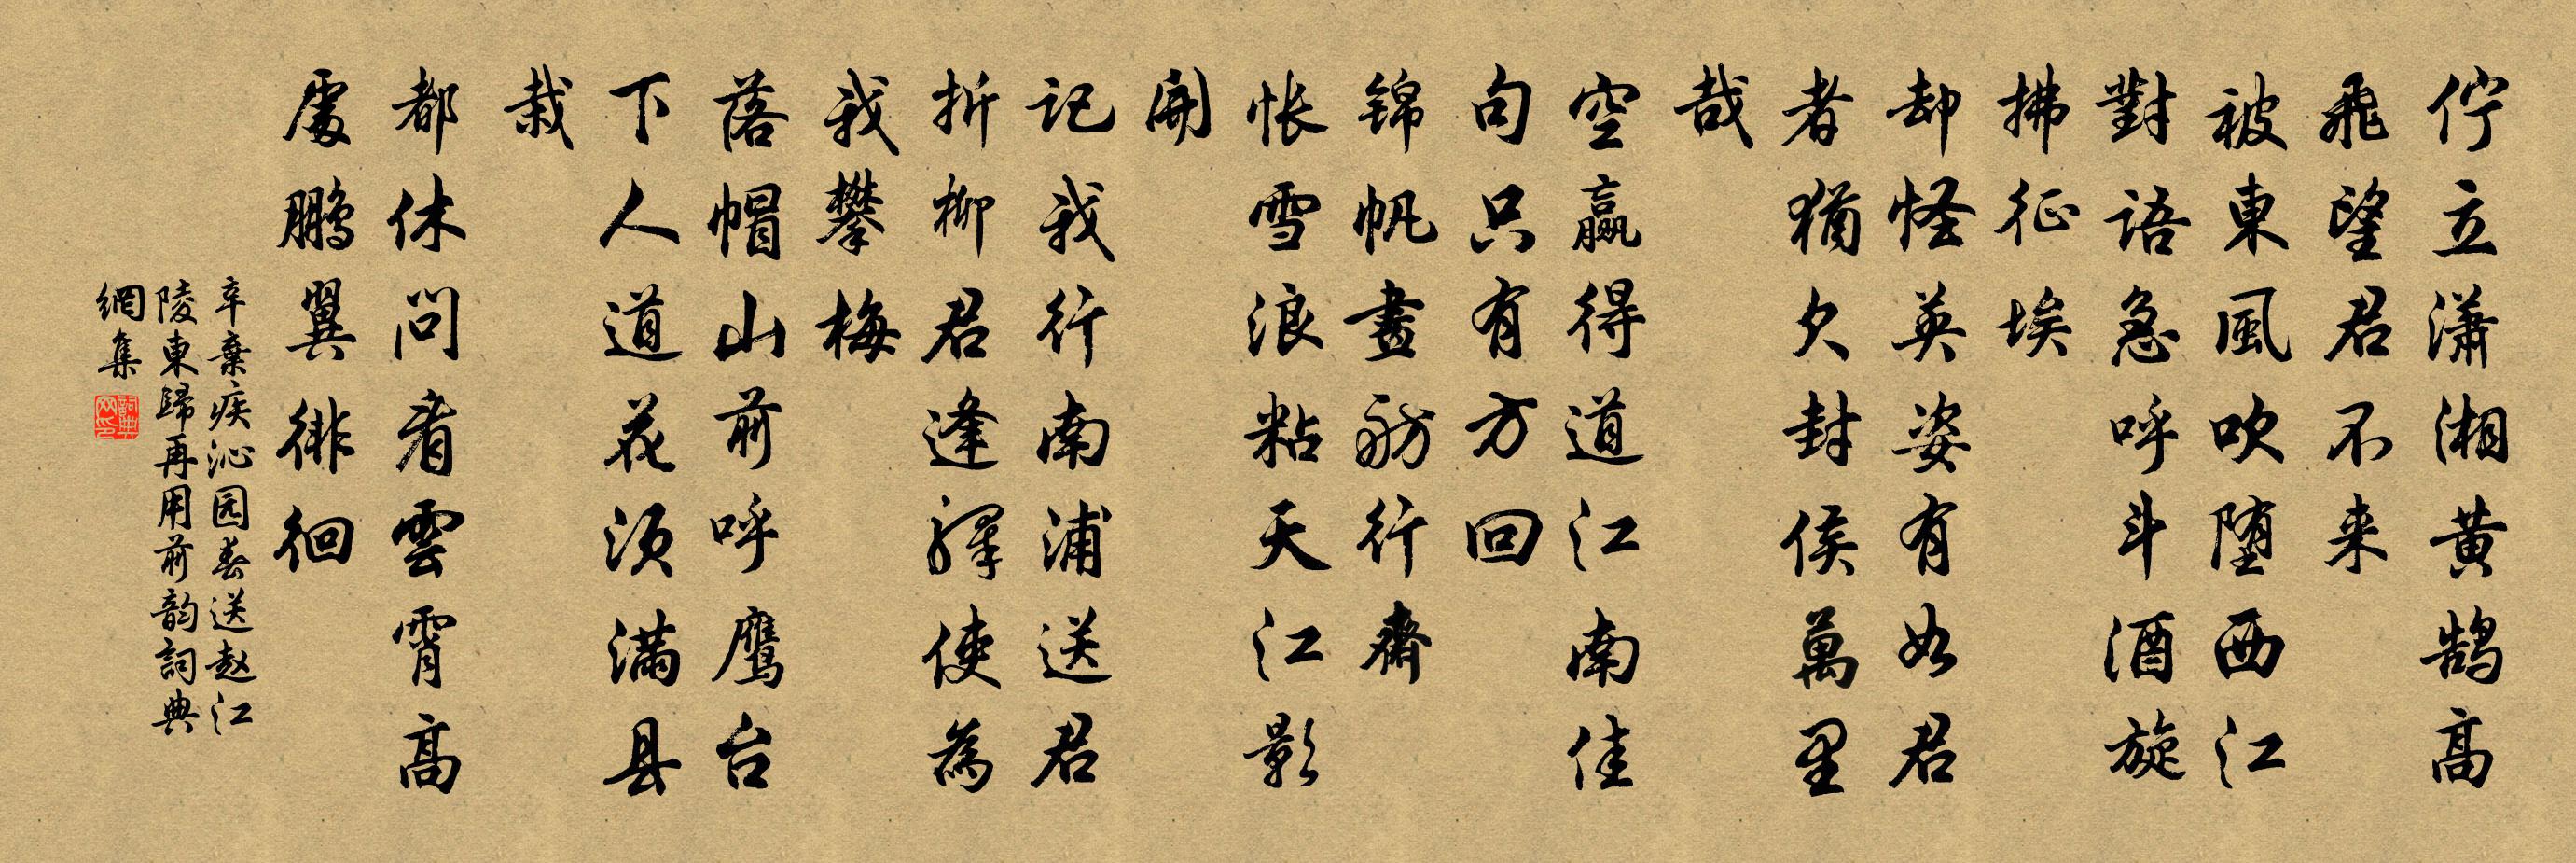 佇立潇湘黄鹄高
飛望君不来
被東風吹堕西江
對語急呼斗酒旋
拂征埃
却怪英姿有如君
者猶欠封侯萬里
哉
空赢得道江南佳
句只有方回
锦帆畫舫行齋
怅雪浪粘天江影
開
记我行南浦送君
折柳君逢驛使為
我攀梅
落帽山前呼鹰台
下人道花须满县
栽
都休问看雲霄高
處鹏翼徘徊
辛棄疾沁园春送赵江
陵東歸再用前韵詞典
網集
詞典网印